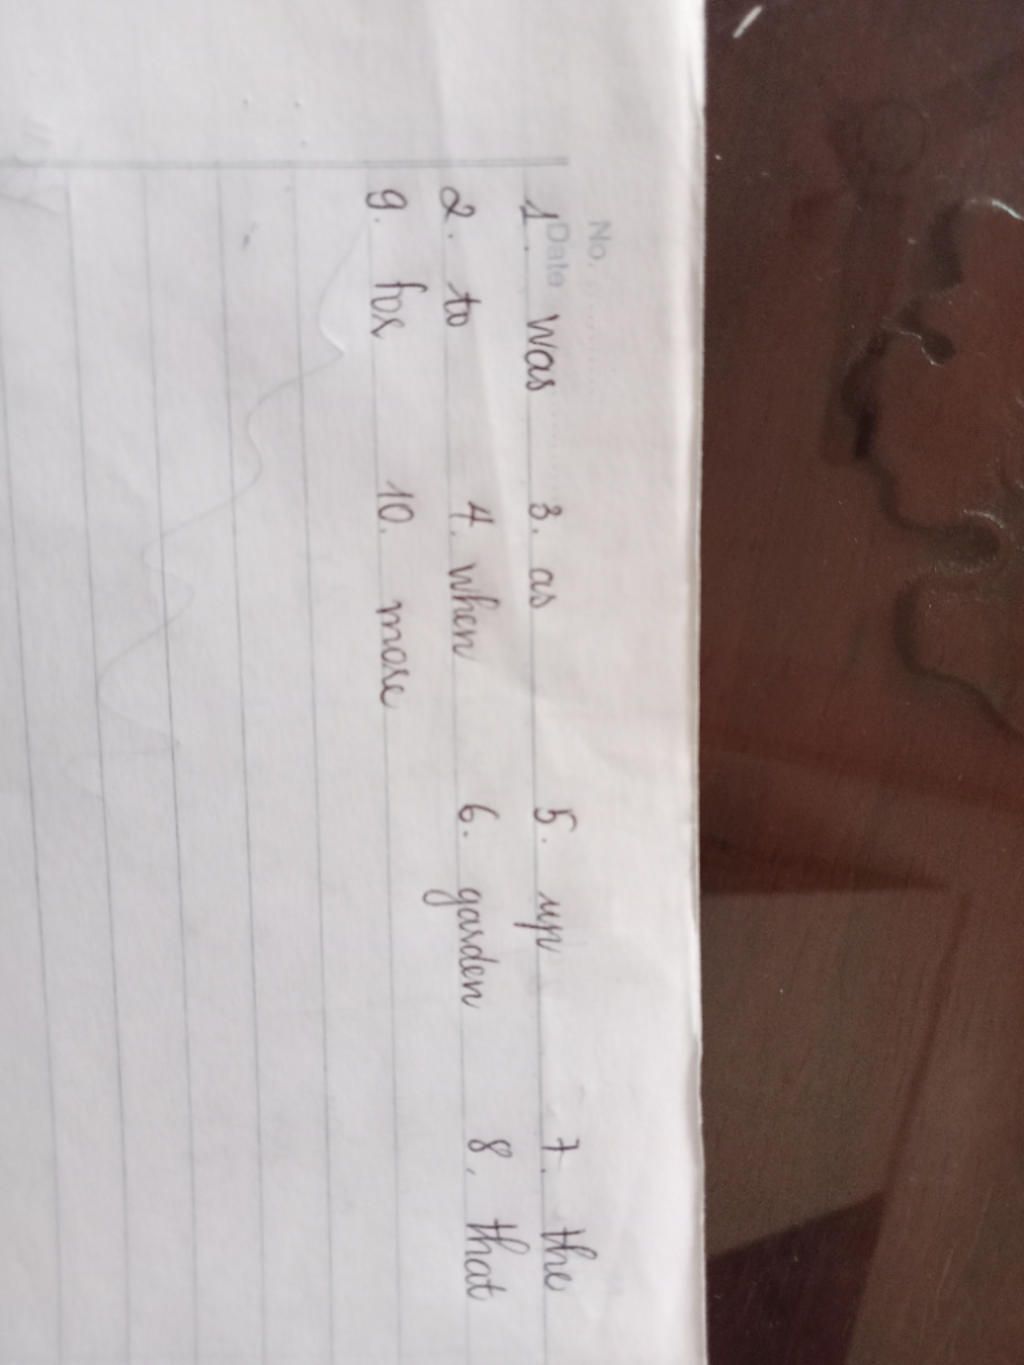 No.
Date
1. was 3. as 5. up 7. the
2. to 4. when 6. garden 8. that
9. for 10. more